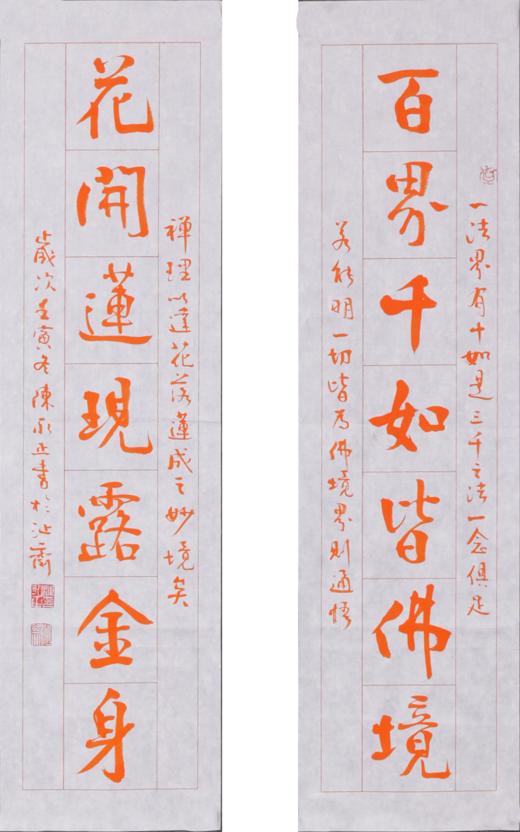 一法界有十如是三千之法一念俱足
百界千如皆佛境
若能明一切皆為佛境界則通悟
禅理以達花落蓮成之妙境矣
花開蓮現露金身
歲次壬寅冬陳永正書於沚齋